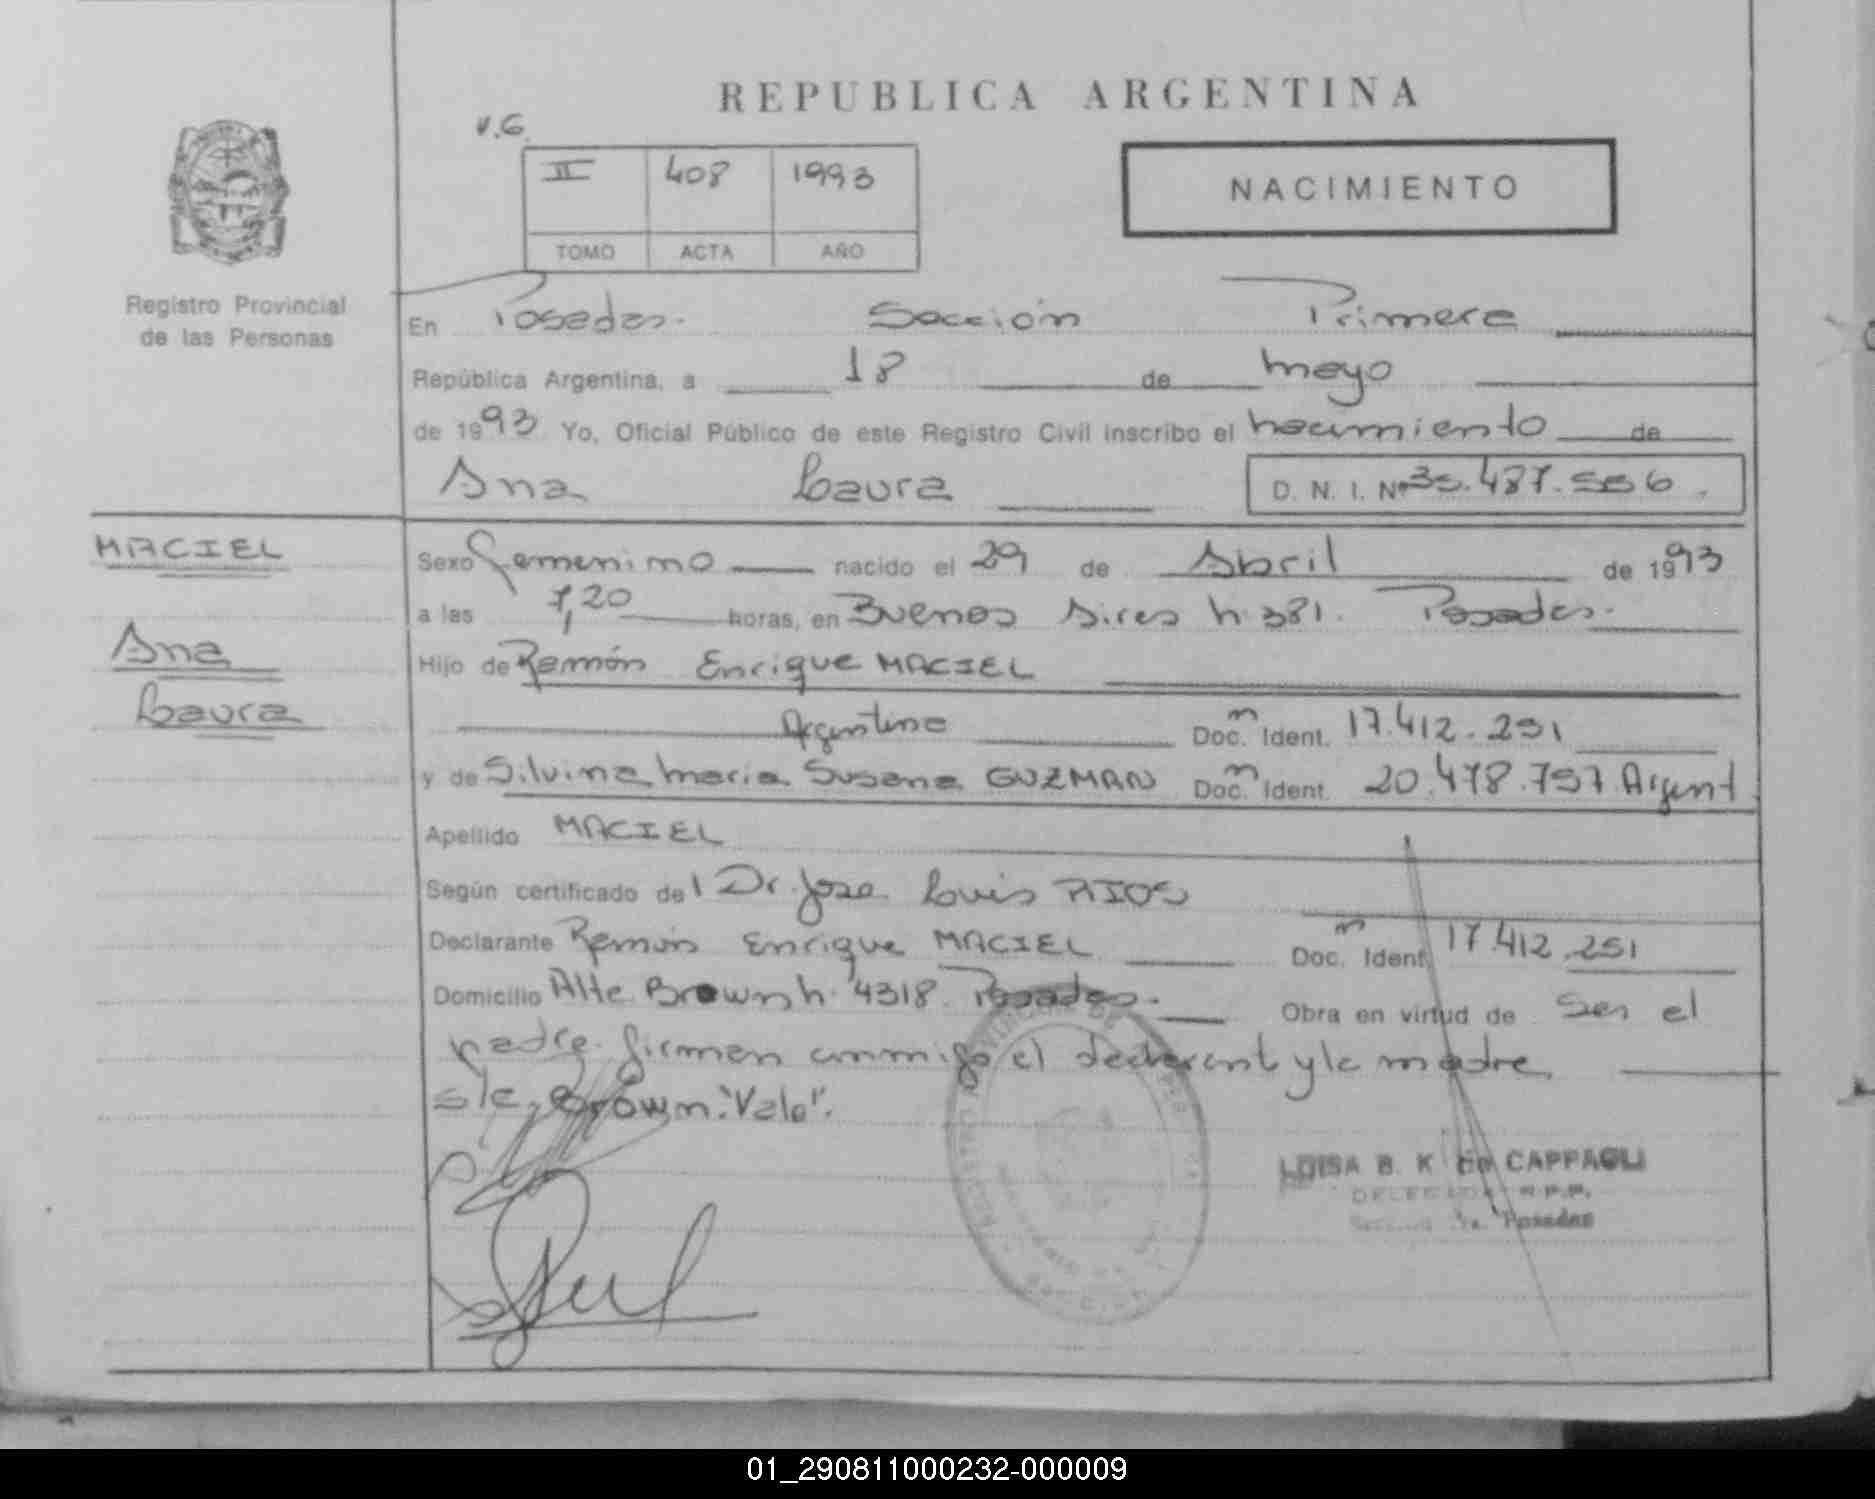 REPUBLICA ARGENTINA
V.G.
II 408 1993
TOMO ACTA AÑO
NACIMIENTO
Registro Provincial
de las Personas
En Posadas. Sección Primera
República Argentina, a 18 de mayo
de 1993 Yo, Oficial Público de este Registro Civil inscribo el nacimiento de
Ana Laura D. N. I. Nº 35.487.556.
MACIEL
Ana
Laura
Sexo Femenino nacido el 29 de Abril de 1993
a las 7,20 horas, en Buenos Aires n. 381. Posadas.
Hijo de Ramón Enrique MACIEL
Argentino Doc. Ident. 17.412.251
y de Silvina Maria Susana GUZMAN Doc. Ident. 20.478.757 Argent
Apellido MACIEL
Según certificado del Dr. Jose Louis RIOS
Declarante Ramón Enrique MACIEL Doc. Ident. 17.412.251
Domicilio Alte Brown n. 4318. Posadas. Obra en virtud de Ser el
padre. firman conmigo el declarant y la madre
s/e, Brown. "Vale".
LUISA B. K de CAPPAGLI
DELEGADA R.P.P.
Sección 1a. Posadas
01_290811000232-000009